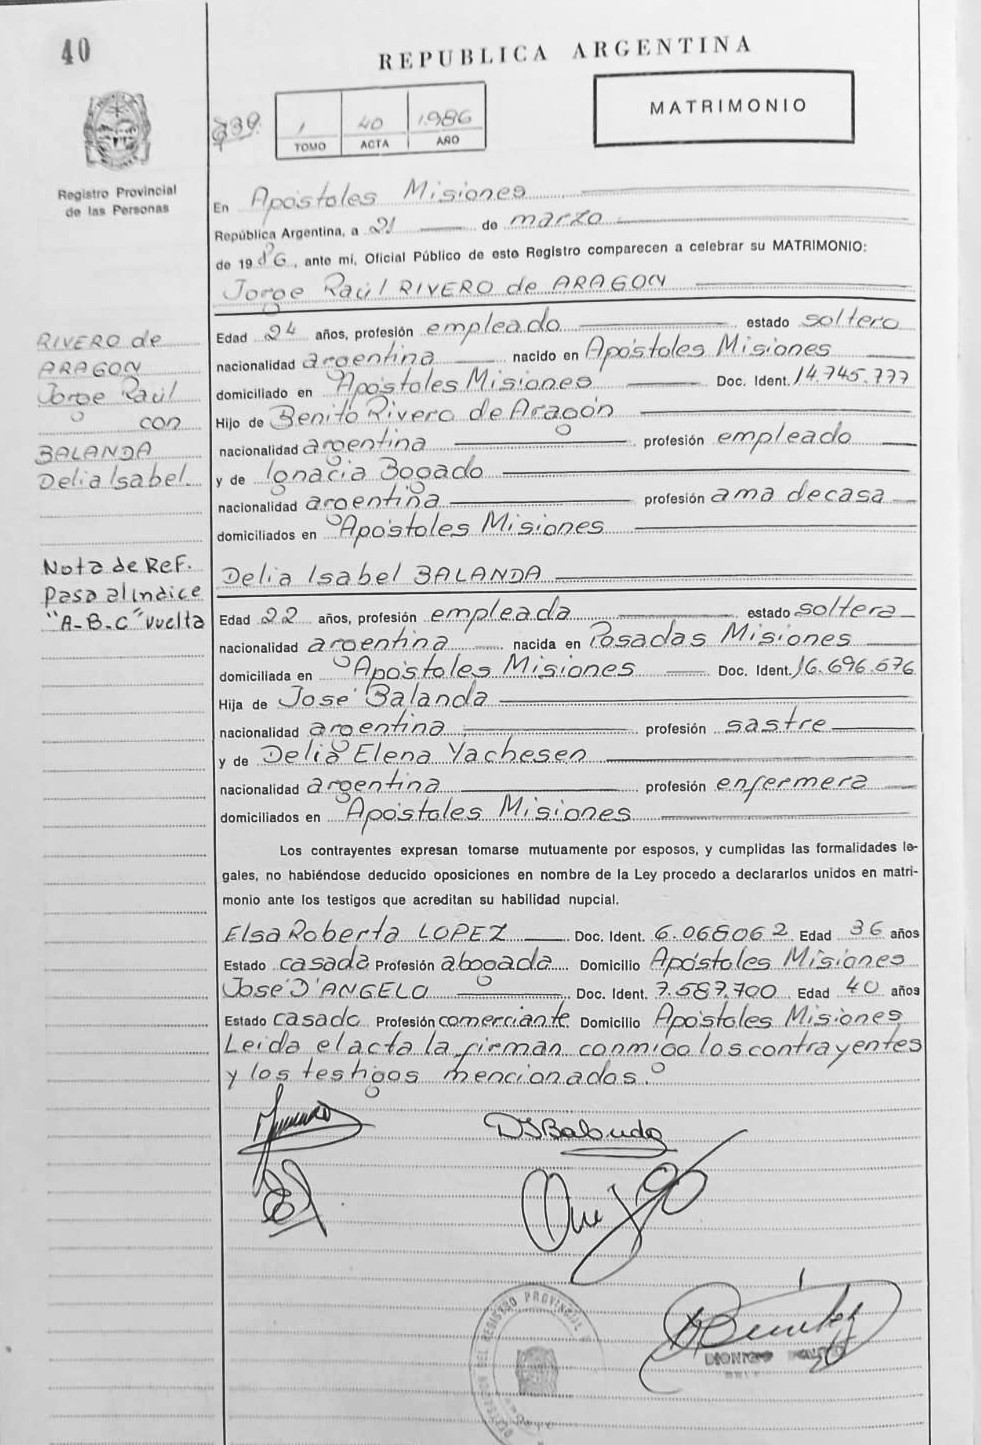 40
REPUBLICA ARGENTINA
MATRIMONIO
239
1 40 1986
TOMO ACTA AÑO
Registro Provincial
de las Personas
En Apóstoles Misiones
República Argentina, a 21 de marzo
de 1986, ante mí, Oficial Público de este Registro comparecen a celebrar su MATRIMONIO:
Jorge Raúl RIVERO de ARAGON
Edad 24 años, profesión empleado estado soltero
nacionalidad argentina nacido en Apóstoles Misiones
domiciliado en Apóstoles Misiones Doc. Ident. 14.745.777
Hijo de Benito Rivero de Aragón
nacionalidad argentina profesión empleado
y de Ignacia Bogado
nacionalidad argentina profesión ama de casa
domiciliados en Apóstoles Misiones
RIVERO de
ARAGON
Jorge Raúl
con
BALANDA
Delia Isabel
Nota de Ref.
pasa al indice
"A-B-C" vuelta
Delia Isabel BALANDA
Edad 22 años, profesión empleada estado soltera
nacionalidad argentina nacida en Posadas Misiones
domiciliada en Apóstoles Misiones Doc. Ident. 16.696.676
Hija de José Balanda
nacionalidad argentina profesión sastre
y de Delia Elena Yachesen
nacionalidad argentina profesión enfermera
domiciliados en Apóstoles Misiones
Los contrayentes expresan tomarse mutuamente por esposos, y cumplidas las formalidades le-
gales, no habiéndose deducido oposiciones en nombre de la Ley procedo a declararlos unidos en matri-
monio ante los testigos que acreditan su habilidad nupcial.
Elsa Roberta LOPEZ Doc. Ident. 6.068062 Edad 36 años
Estado casada Profesión abogada Domicilio Apóstoles Misiones
José D'ANGELO Doc. Ident. 7.587.700 Edad 40 años
Estado casado Profesión comerciante Domicilio Apóstoles Misiones
Leida el acta la firman conmigo los contrayentes
y los testigos mencionados.
DIBalanda
Benitez
DEL REGISTRO PROVINCIAL